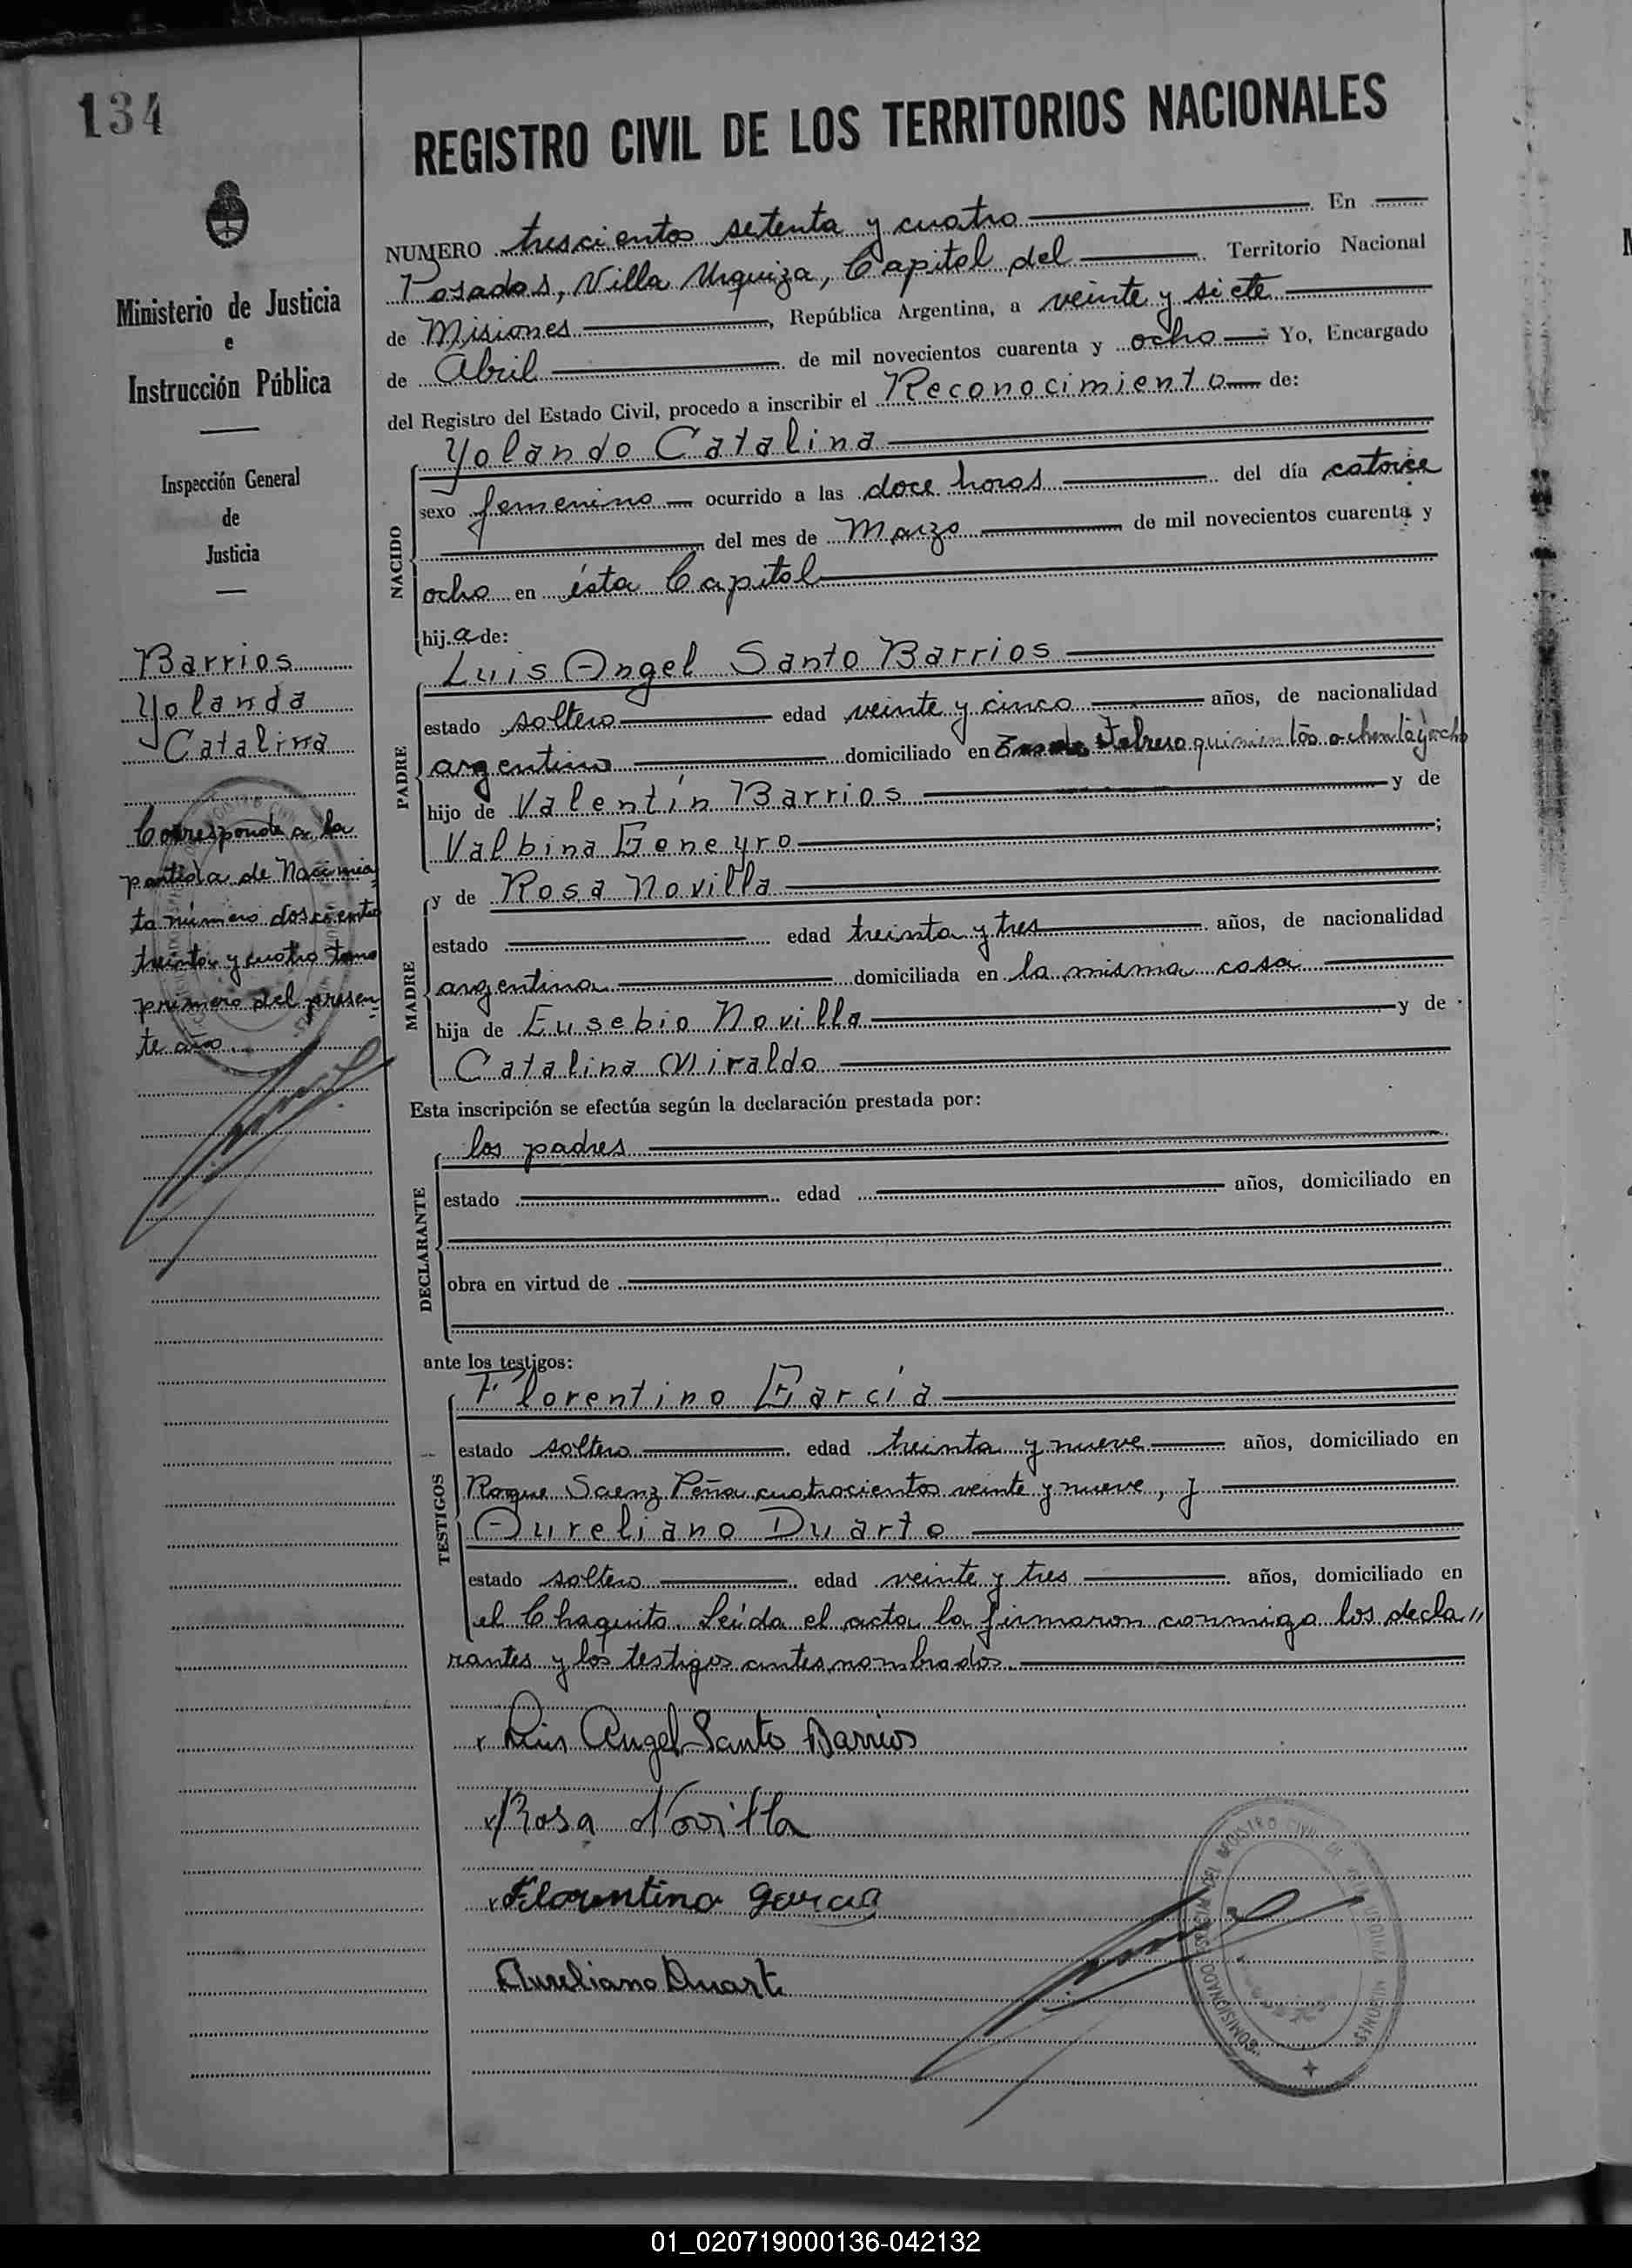 134
REGISTRO CIVIL DE LOS TERRITORIOS NACIONALES
Ministerio de Justicia
e
Instrucción Pública
Inspección General
de
Justicia
Barrios
Yolanda
Catalina
Corresponde a la
partida de Nacimien
to número doscientos
treinta y cuatro tomo
primero del presen
te año.
NUMERO trescientos setenta y cuatro En
Posadas, Villa Urquiza, Capital del Territorio Nacional
de Misiones, República Argentina, a veinte y siete
de Abril de mil novecientos cuarenta y ocho Yo, Encargado
del Registro del Estado Civil, procedo a inscribir el Reconocimiento de:
NACIDO
Yolando Catalina
sexo femenino ocurrido a las doce horas del día catorce
del mes de Marzo de mil novecientos cuarenta y
ocho en ésta Capital
hija de:
PADRE
Luis Angel Santo Barrios
estado soltero edad veinte y cinco años, de nacionalidad
argentino domiciliado en Febrero quinientos ochenta y ocho
hijo de Valentín Barrios y de
Valbina Geneyro;
MADRE
y de Rosa Novilla
estado edad treinta y tres años, de nacionalidad
argentina domiciliada en la misma casa
hija de Eusebio Novilla y de
Catalina Miraldo
Esta inscripción se efectúa según la declaración prestada por:
DECLARANTE
los padres
estado edad años, domiciliado en
obra en virtud de
ante los testigos:
TESTIGOS
Florentino García
estado soltero edad treinta y nueve años, domiciliado en
Roque Saenz Peña cuatrocientos veinte y nueve, y
Aureliano Duarte
estado soltero edad veinte y tres años, domiciliado en
el Chaquito. Leída el acta la firmaron conmigo los decla"
rantes y los testigos antes nombrados.
Luis Angel Santo Barrios
Rosa Novilla
Florentino Garcia
Aureliano Duarte
01_020719000136-042132